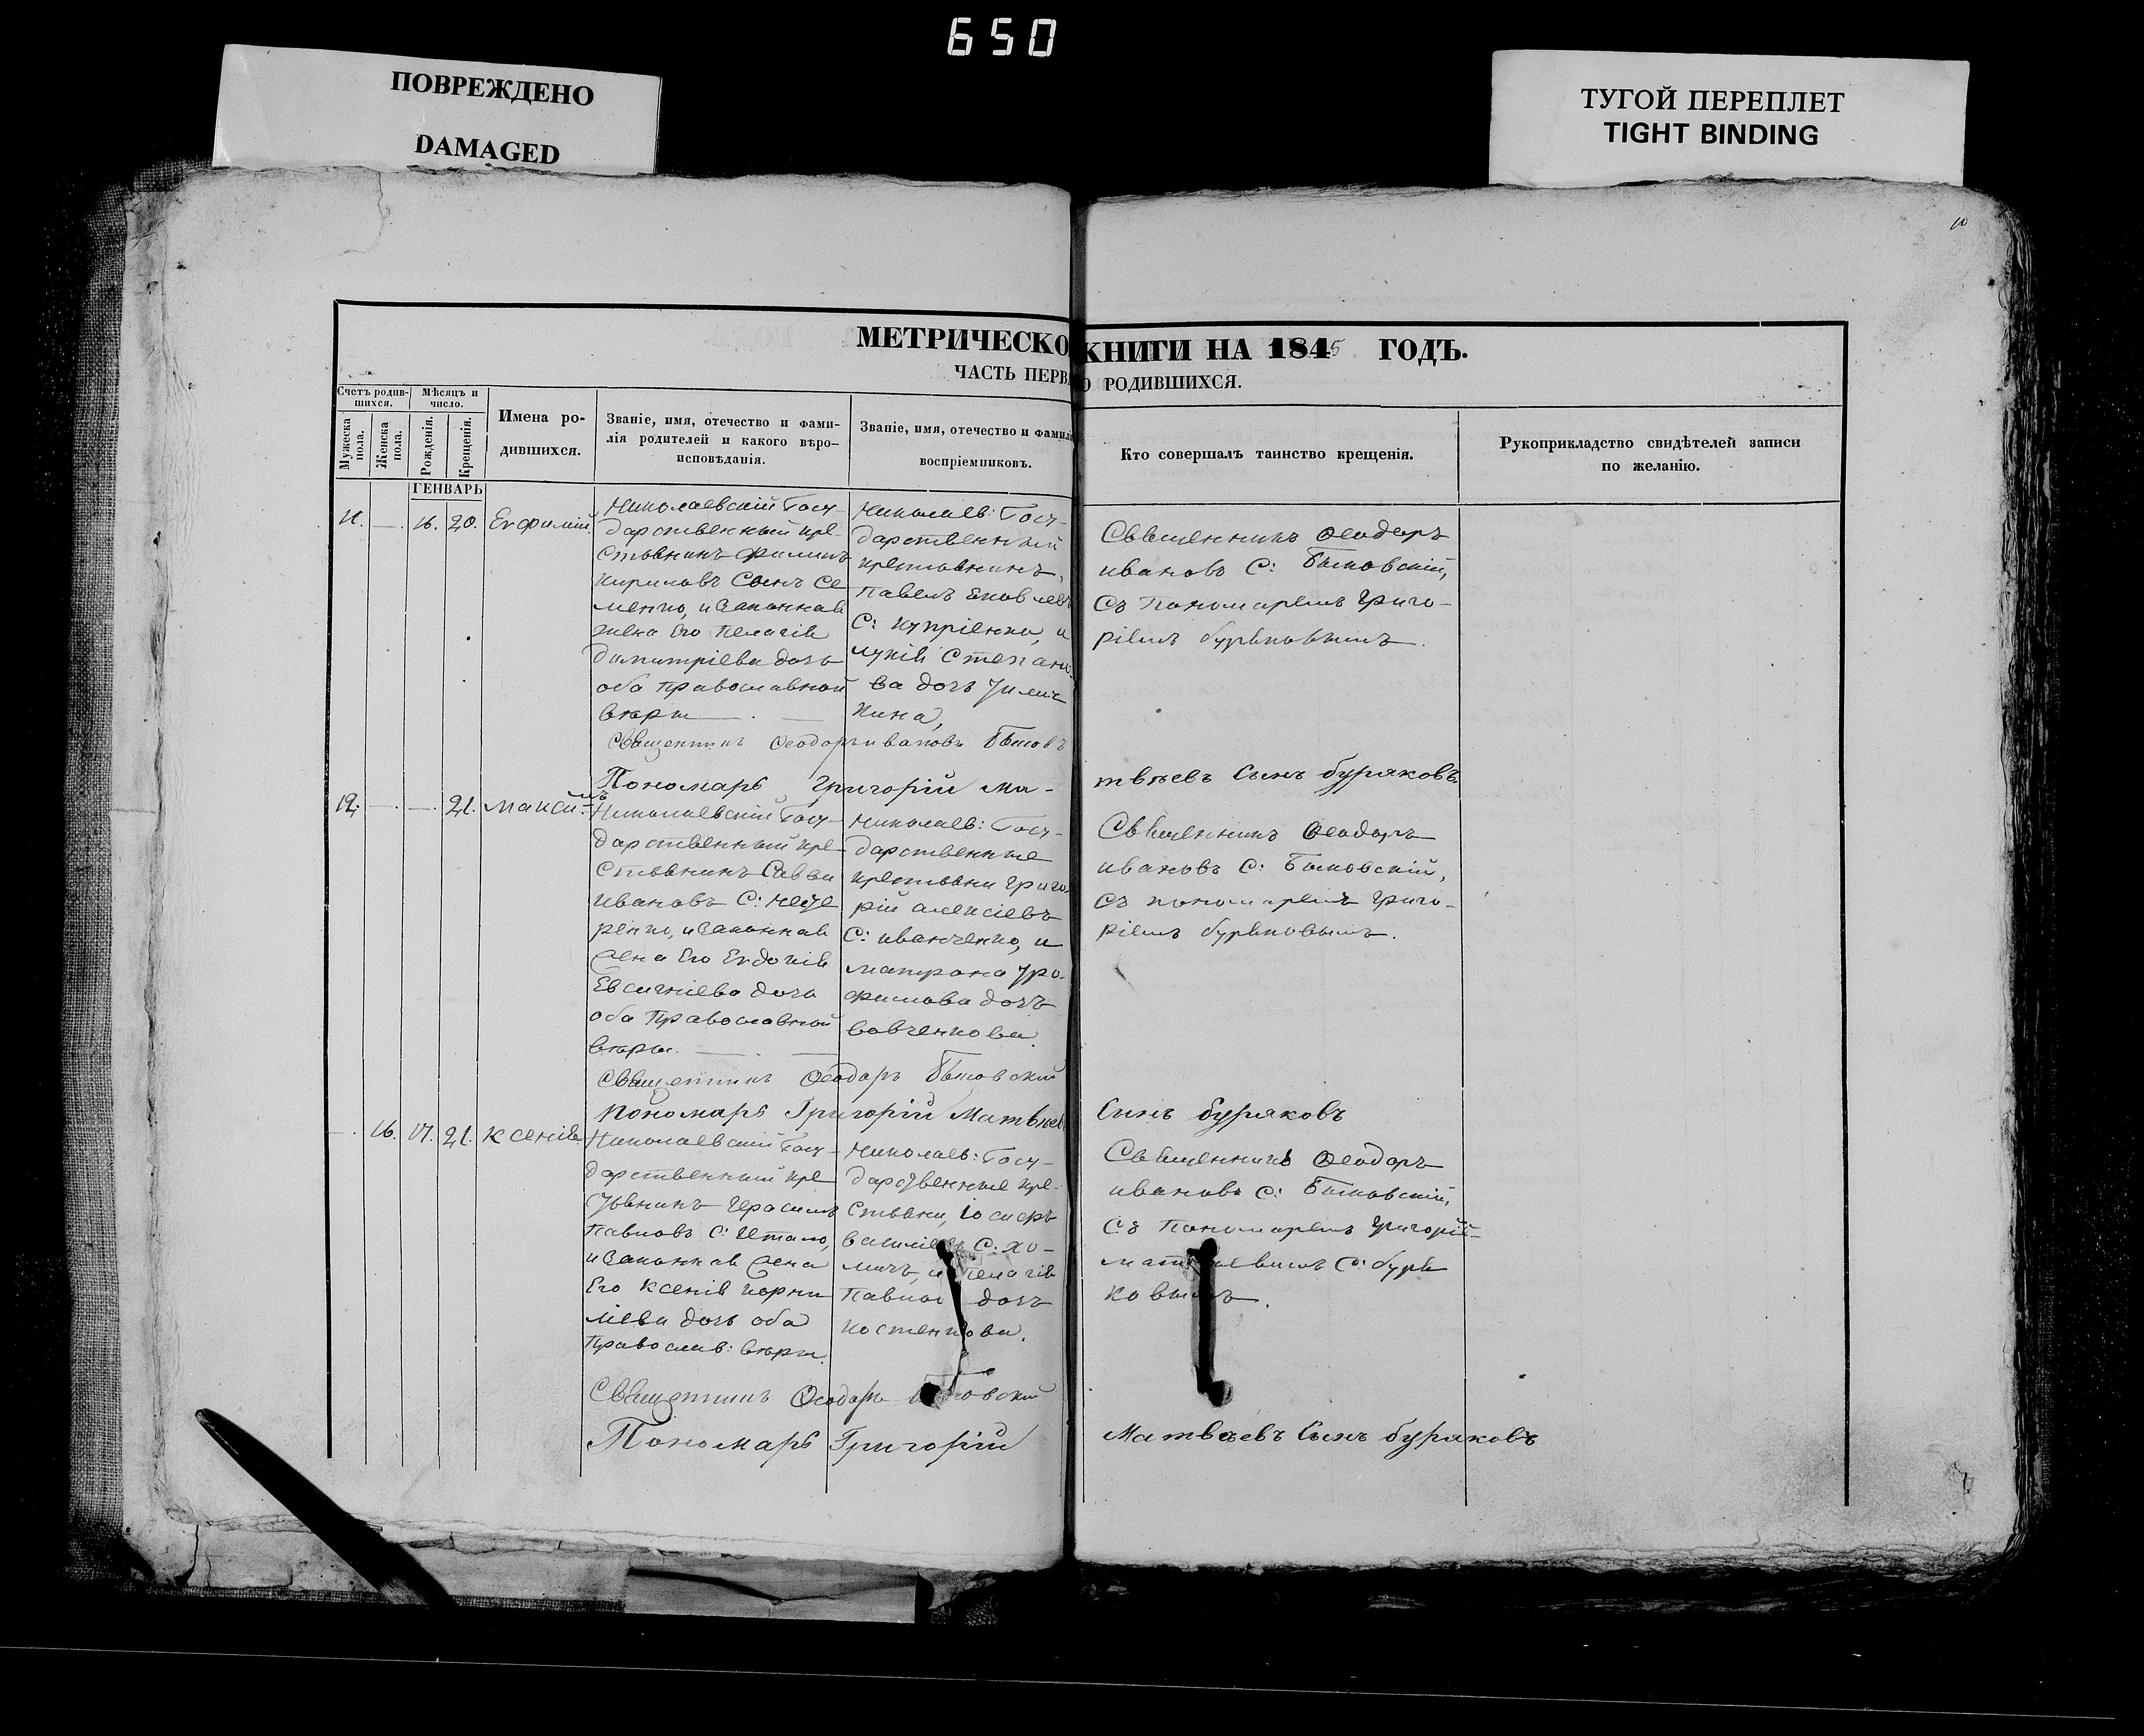 650
ПОВРЕЖДЕНО
DAMAGED
ТУГОЙ ПЕРЕПЛЕТ
TIGHT BINDING
10
МЕТРИЧЕСКО КНИГИ НА 1845 ГОДЪ.
ЧАСТЬ ПЕРВ О РОДИВШИХСЯ.
Счетъ родив-
шихся.
Мужеска
пола.
Женска
пола.
Мѣсяцъ и
число.
Рожденія.
Крещенія.
Имена ро-
дившихся.
Званіе, имя, отечество и фами-
лія родителей и какого вѣро-
исповѣданія.
Званіе, имя, отечество и фамил
воспріемниковъ.
Кто совершалъ таинство крещенія.
Рукоприкладство свидѣтелей записи
по желанію.
ГЕНВАРЬ
11. —. 16. 20. Евфимій
Николаевскій Госу-
дарственный кре-
стьянинъ Филипъ
Кириловъ Сынъ Се
менко, и Законная
жена Его Пелагія
Димитріева дочь
оба Православной
вѣры
Николаев: Госу-
дарственный
крестьянинъ,
Павелъ Яковлевъ
С: Купріенко, и
Лукія Степано-
ва дочь
Священникъ Ѳеодоръ
Ивановъ С: Быковскій,
Съ Пономаремъ Григо-
ріемъ Буряковымъ.
Священникъ Ѳеодоръ Ивановъ
Пономарь Григорій Ма-
твѣевъ Сынъ Буряковъ
12. —. —. 21. Максимъ
Николаевскій Госу-
дарственный кре-
стьянинъ Савва
Ивановъ С: Неще
ренко, и Законная
жена Его Евдокія
Евсигніева дочь
оба Православной
вѣры.
Николаев: Госу-
дарственные
крестьяни Григо-
рій Алексіевъ
С: Иванченко, и
Матрона Тро-
фимова дочь
Вовченкова.
Священникъ Ѳеодоръ
Ивановъ С: Быковскій,
Съ пономаремъ Григо-
ріемъ Буряковымъ.
Священникъ Ѳеодоръ Быковскій
Пономарь Григорій Матвѣев
Сынъ Буряковъ
—. 16. 17. 21. Ксенія
Николаевскій Госу-
дарственный кре
стьянинъ Герасимъ
Павловъ С:
и Законная жена
Его Ксенія Корни
ліева дочь оба
Православ: вѣры.
Николаев: Госу-
дарственные кре-
стьяни, Іосифъ
С: Хо-
мичъ, и Пелагія
дочь
Костенкова.
Священникъ Ѳеодоръ
Ивановъ С: Быковскій,
Съ Пономаремъ Григорій-
С: Буря
ковымъ.
Священникъ Ѳеодоръ
Пономарь Григорій
Матвѣевъ Сынъ Буряковъ